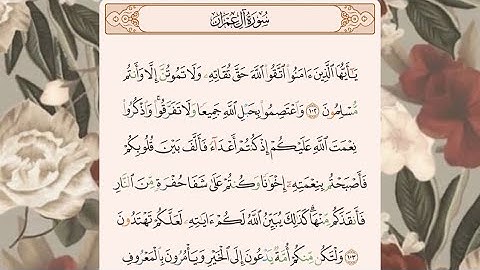 سُورَةُ آلِ عِمْرَانَ
يَـٰٓأَيُّهَا ٱلَّذِينَ ءَامَنُوا۟ ٱتَّقُوا۟ ٱللَّهَ حَقَّ تُقَاتِهِۦ وَلَا تَمُوتُنَّ إِلَّا وَأَنتُم
مُّسْلِمُونَ ١٠٢ وَٱعْتَصِمُوا۟ بِحَبْلِ ٱللَّهِ جَمِيعًا وَلَا تَفَرَّقُوا۟ ۚ وَٱذْكُرُوا۟
نِعْمَتَ ٱللَّهِ عَلَيْكُمْ إِذْ كُنتُمْ أَعْدَآءً فَأَلَّفَ بَيْنَ قُلُوبِكُمْ
فَأَصْبَحْتُم بِنِعْمَتِهِۦٓ إِخْوَٰنًا وَكُنتُمْ عَلَىٰ شَفَا حُفْرَةٍ مِّنَ ٱلنَّارِ
فَأَنقَذَكُم مِّنْهَا ۗ كَذَٰلِكَ يُبَيِّنُ ٱللَّهُ لَكُمْ ءَايَـٰتِهِۦ لَعَلَّكُمْ تَهْتَدُونَ
١٠٣ وَلْتَكُن مِّنكُمْ أُمَّةٌ يَدْعُونَ إِلَى ٱلْخَيْرِ وَيَأْمُرُونَ بِٱلْمَعْرُوفِ